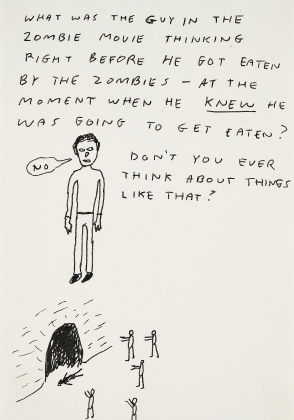 WHAT WAS THE GUY IN THE
ZOMBIE MOVIE THINKING
RIGHT BEFORE HE GOT EATEN
BY THE ZOMBIES – AT THE
MOMENT WHEN HE KNEW HE
WAS GOING TO GET EATEN?
NO
DON'T YOU EVER
THINK ABOUT THINGS
LIKE THAT?